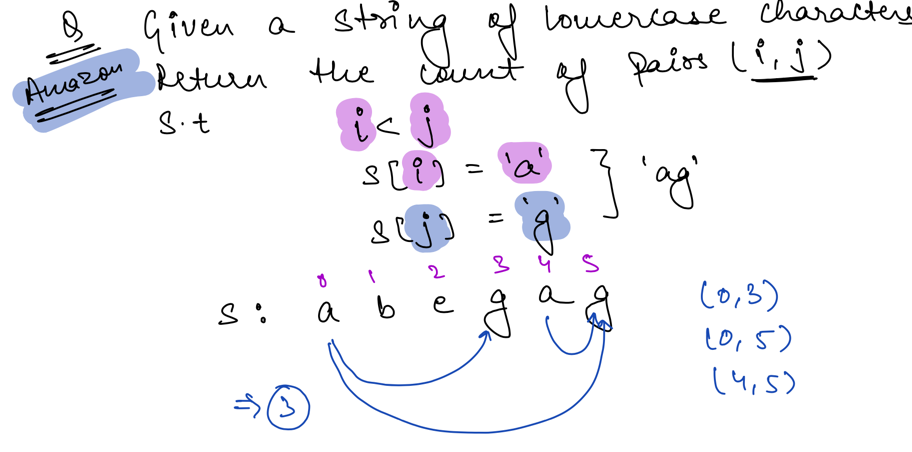 Q Given a string of lowercase characters
Amazon Return the count of pairs (i, j)
s.t i < j
s[i] = 'a' } 'ag'
s[j] = 'g'
0 1 2 3 4 5
s: a b e g a g
(0,3)
(0, 5)
(4,5)
⇒ 3